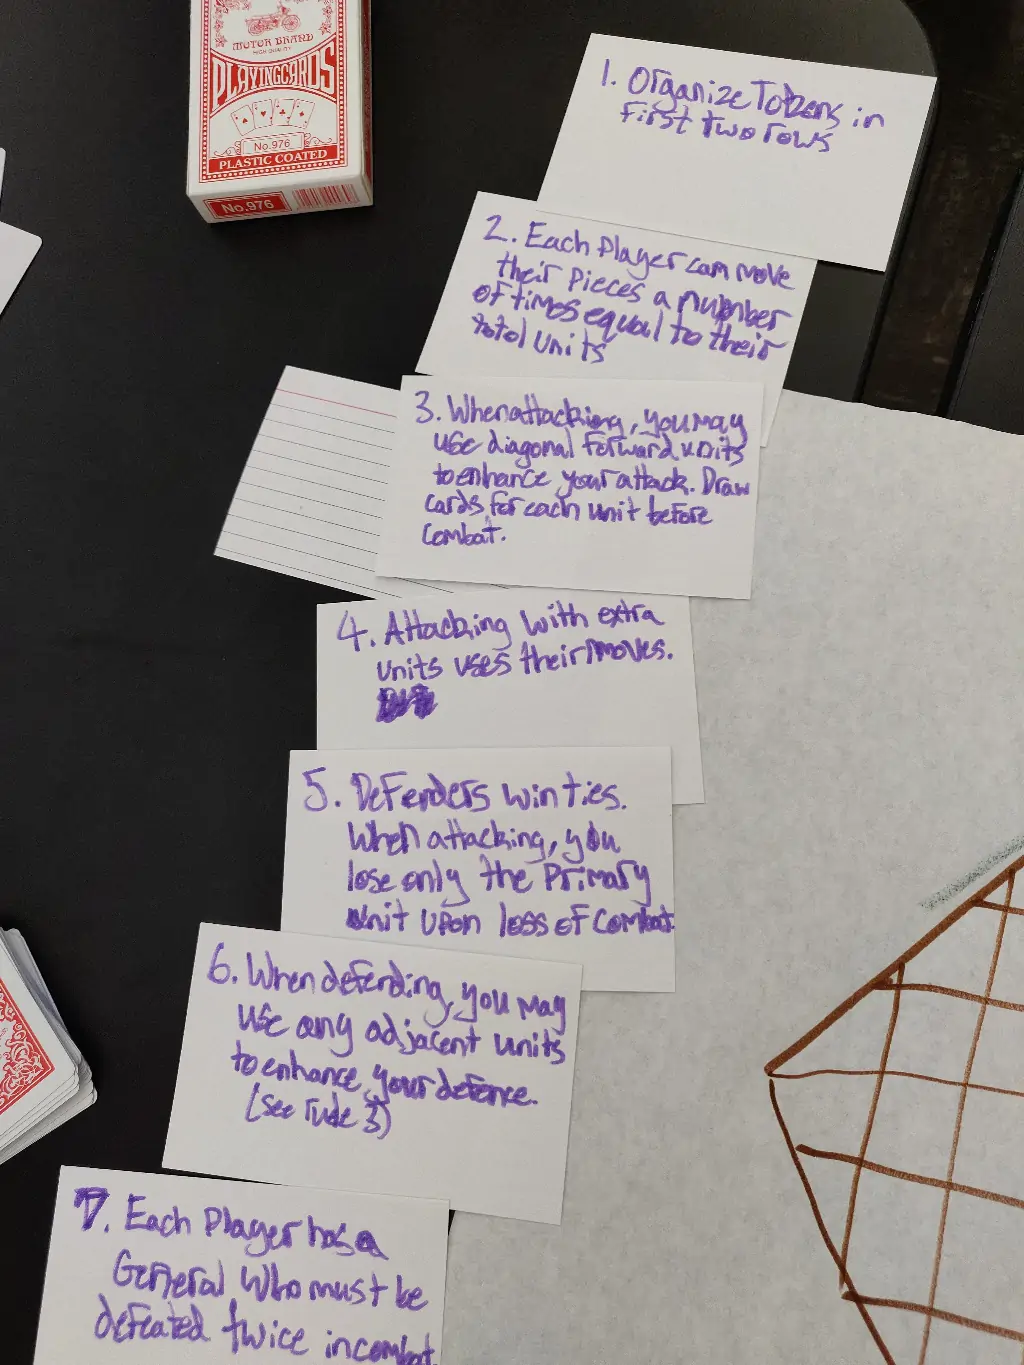 MOTOR BRAND
HIGH QUALITY
PLAYING CARDS
No.976
PLASTIC COATED
No.976
1. Organize Tokens in
first two rows
2. Each Player can move
their pieces a number
of times equal to their
total units
3. When attacking, you may
use diagonal forward units
to enhance your attack. Draw
cards for each unit before
combat.
4. Attacking with extra
units uses their moves.
5. Defenders win ties.
When attacking, you
lose only the Primary
unit upon loss of combat.
6. When defending, you may
use any adjacent units
to enhance your defence.
(See rule 3)
7. Each Player has a
General who must be
defeated twice in combat